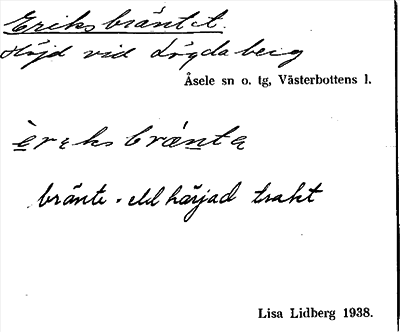 Eriksbräntet.
Höjd vid Lögdaberg
Åsele sn o. tg, Västerbottens l.
èrᶒksbrántᶒ
bränte = eldhärjad trakt
Lisa Lidberg 1938.